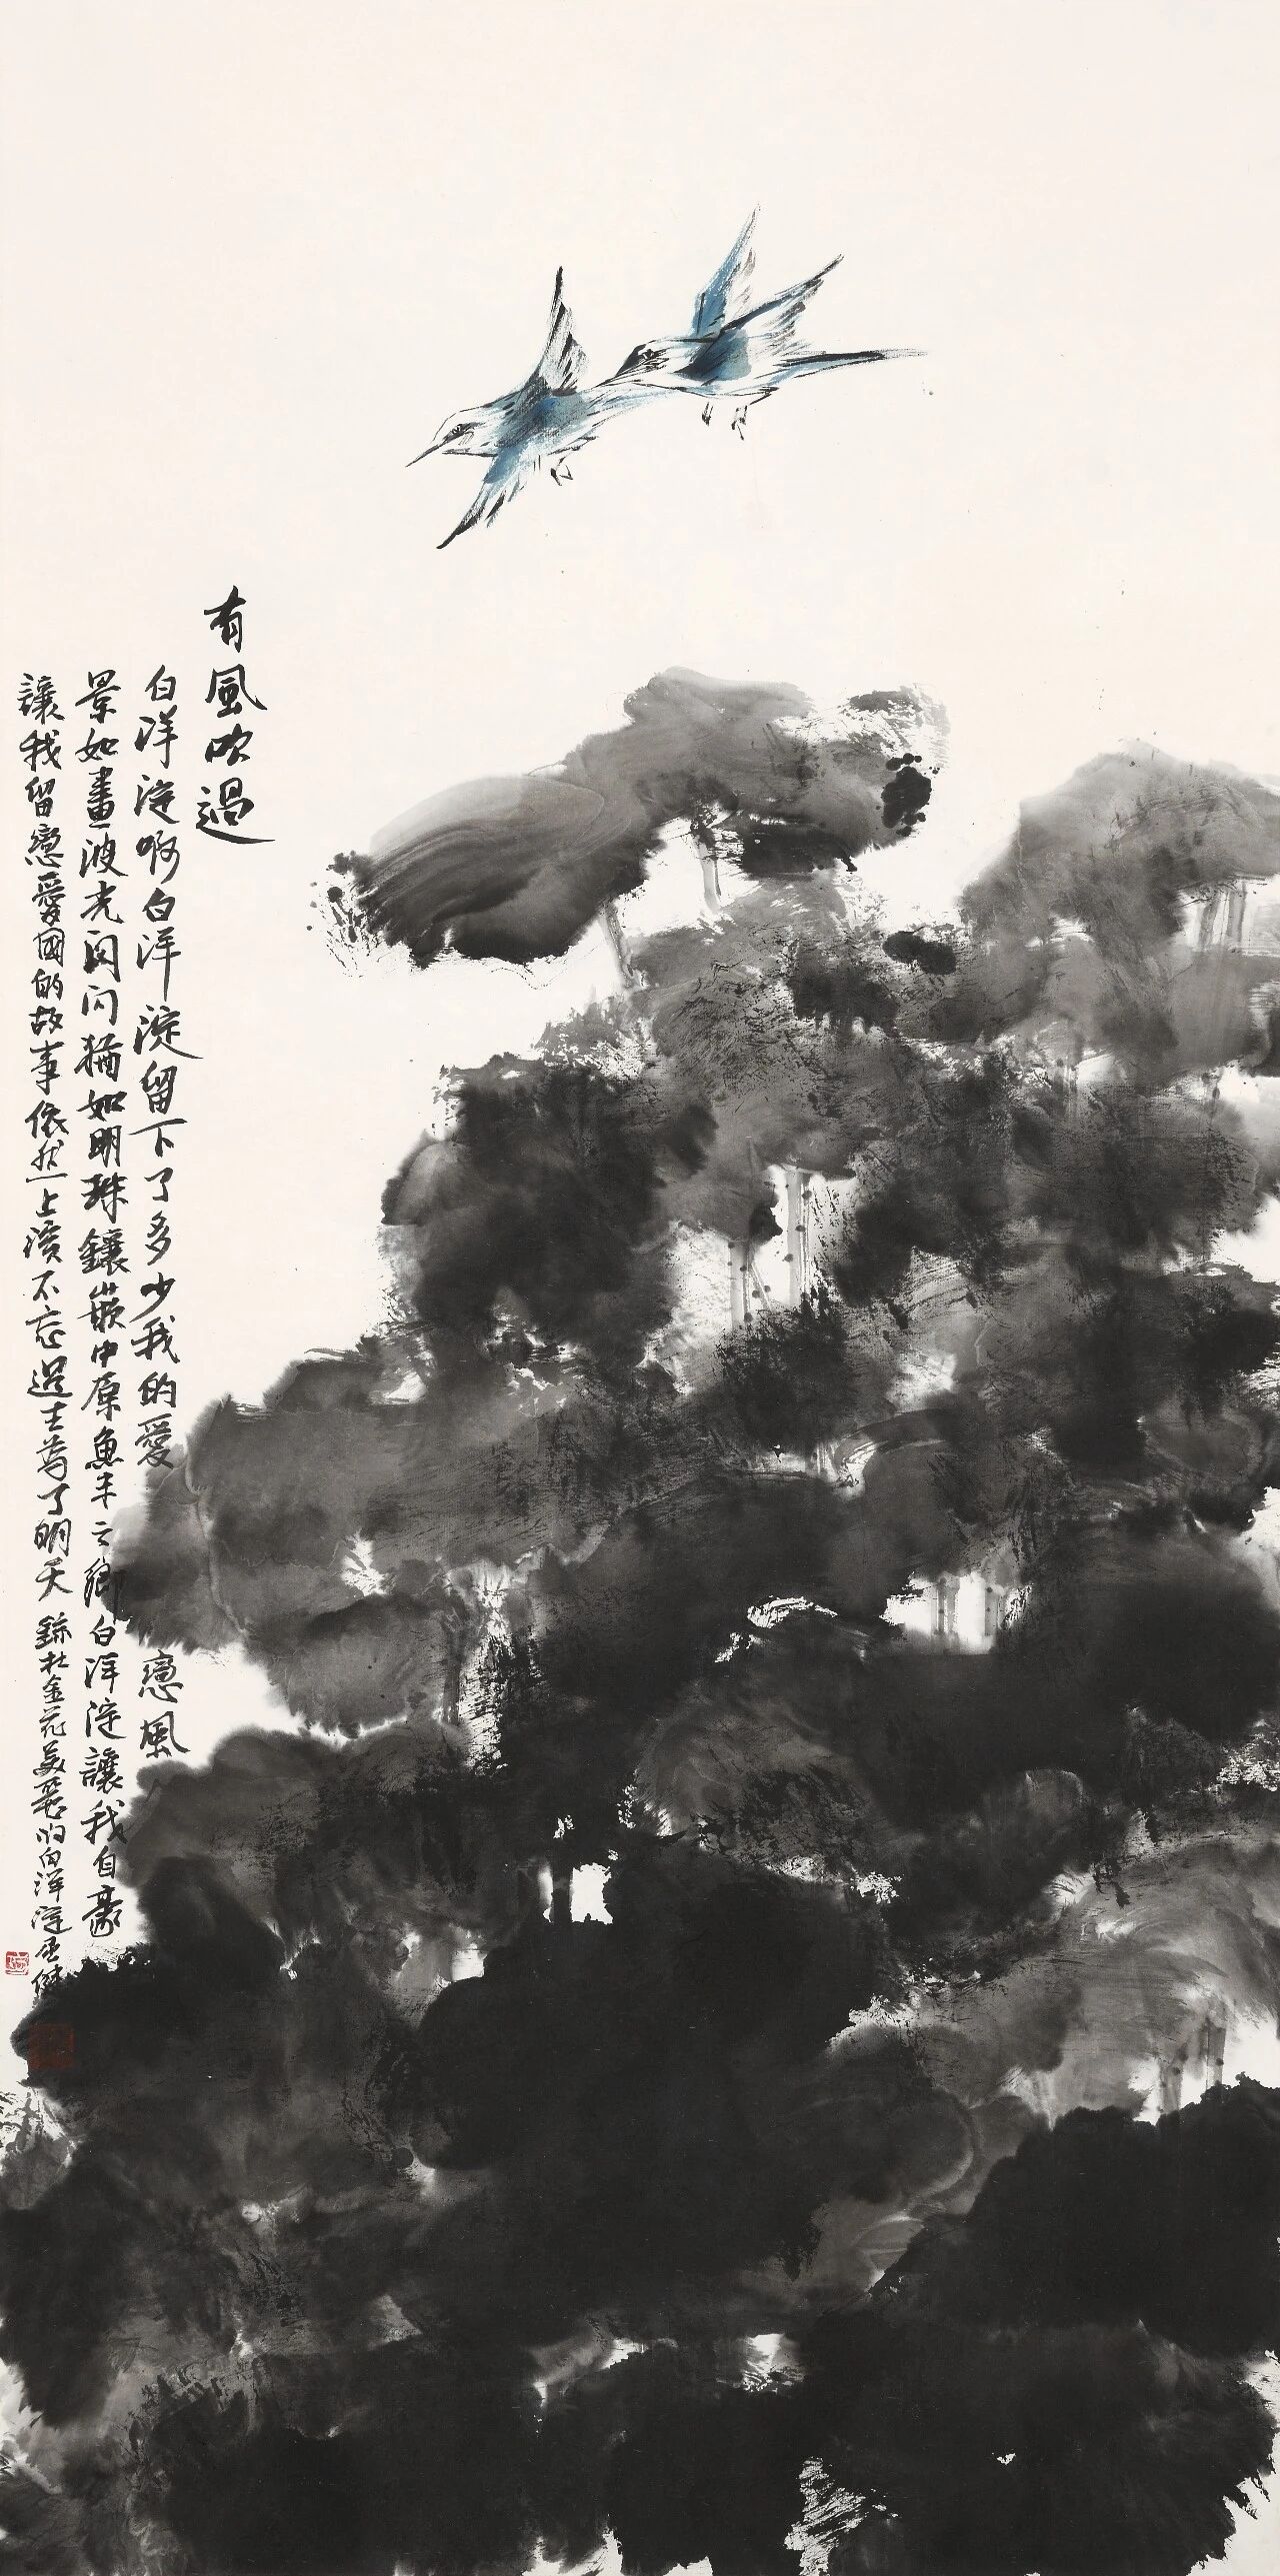 有風吹過
白洋淀啊白洋淀留下了多少我的愛 戀風
景如畫波光閃閃猶如明珠鑲嵌中原魚米之鄉白洋淀讓我自豪
讓我留戀愛國的故事依然上演不忘過去為了明天 錄杜金花美麗的白洋淀